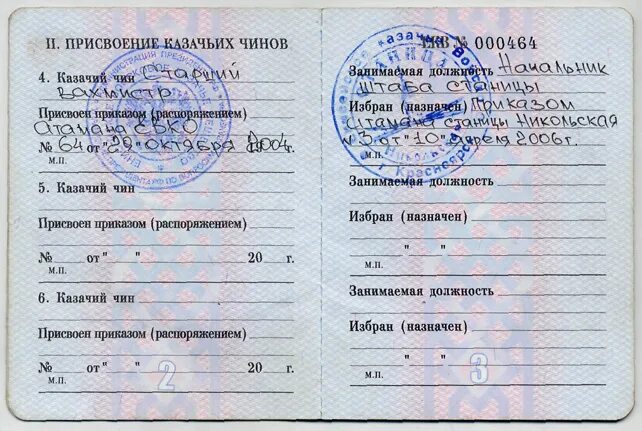 II. ПРИСВОЕНИЕ КАЗАЧЬИХ ЧИНОВ
4. Казачий чин Старший
вахмистр
Присвоен приказом (распоряжением)
Атамана ЕВКО
№ 64 от "29" октября 2004 г.
М.П.
5. Казачий чин
Присвоен приказом (распоряжением)
№ от " " 20 г.
М.П.
6. Казачий чин
Присвоен приказом (распоряжением)
№ от " " 20 г.
М.П.
2
ЕКВ № 000464
Занимаемая должность Начальник
штаба станицы
Избран (назначен) Приказом
Атамана станицы Никольская
№3 от "10" апреля 2006 г.
М.П.
Занимаемая должность
Избран (назначен)
" "
М.П.
Занимаемая должность
Избран (назначен)
" "
М.П.
3
СТАНИЦА
г. Красноярск